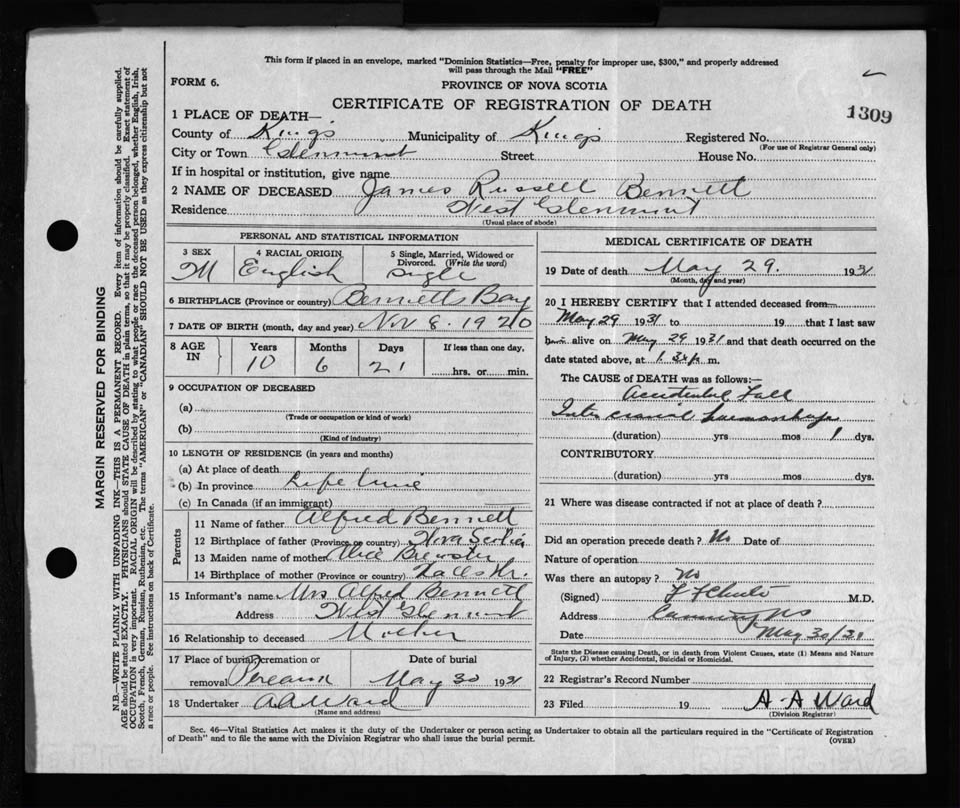 This form if placed in an envelope, marked "Dominion Statistics—Free, penalty for improper use, $300," and properly addressed
will pass through the Mail "FREE"
FORM 6.
PROVINCE OF NOVA SCOTIA
CERTIFICATE OF REGISTRATION OF DEATH
1309
1 PLACE OF DEATH—
County of King's Municipality of King's Registered No.
(For use of Registrar General only)
City or Town Glenmont Street House No.
If in hospital or institution, give name
2 NAME OF DECEASED James Russell Bennett
Residence West Glenmont
(Usual place of abode)
PERSONAL AND STATISTICAL INFORMATION
3 SEX M
4 RACIAL ORIGIN English
5 Single, Married, Widowed or Divorced. (Write the word) single
6 BIRTHPLACE (Province or country) Bennetts Bay
7 DATE OF BIRTH (month, day and year) Nov 8. 1920
8 AGE IN Years Months Days If less than one day,
10 6 21 hrs. or min.
9 OCCUPATION OF DECEASED
(a)
(Trade or occupation or kind of work)
(b)
(Kind of industry)
10 LENGTH OF RESIDENCE (in years and months)
(a) At place of death
(b) In province Life time
(c) In Canada (if an immigrant)
Parents
11 Name of father Alfred Bennett
12 Birthplace of father (Province or country) Nova Scotia
13 Maiden name of mother Alice Brewster
14 Birthplace of mother (Province or country)
15 Informant's name Mrs Alfred Bennett
Address West Glenmont
16 Relationship to deceased Mother
17 Place of burial, cremation or removal Pereau
Date of burial May 30 1931
18 Undertaker A.A. Ward
(Name and address)
MEDICAL CERTIFICATE OF DEATH
19 Date of death May 29. 1931
(Month, day and year)
20 I HEREBY CERTIFY that I attended deceased from
May 29 1931 to 19 that I last saw
him alive on May 29 1931 and that death occurred on the
date stated above, at 1.30 p. m.
The CAUSE OF DEATH was as follows:—
Accidental Fall
Intra cranial haemorrhage
(duration) yrs mos 1 dys.
CONTRIBUTORY
(duration) yrs mos dys.
21 Where was disease contracted if not at place of death?
Did an operation precede death? No Date of
Nature of operation
Was there an autopsy? no
(Signed) M.D.
Address Canning NS
Date May 30/31
State the Disease causing Death, or in death from Violent Causes, state (1) Means and Nature
of Injury, (2) whether Accidental, Suicidal or Homicidal.
22 Registrar's Record Number
23 Filed 19 A. A Ward
(Division Registrar)
Sec. 46—Vital Statistics Act makes it the duty of the Undertaker or person acting as Undertaker to obtain all the particulars required in the "Certificate of Registration
of Death" and to file the same with the Division Registrar who shall issue the burial permit.
(OVER)
MARGIN RESERVED FOR BINDING
N.B.—WRITE PLAINLY WITH UNFADING INK—THIS IS A PERMANENT RECORD. Every item of information should be carefully supplied.
AGE should be stated EXACTLY. PHYSICIANS should STATE CAUSE OF DEATH in plain terms, so that it may be properly classified. Exact statement of
OCCUPATION is very important. RACIAL ORIGIN will be described by stating to what people or race the deceased person belonged, whether English, Irish,
Scotch, French, German, Russian, Ruthenian, etc. The terms "AMERICAN" or "CANADIAN" SHOULD NOT BE USED as they express citizenship but not
a race or people. See instructions on back of Certificate.